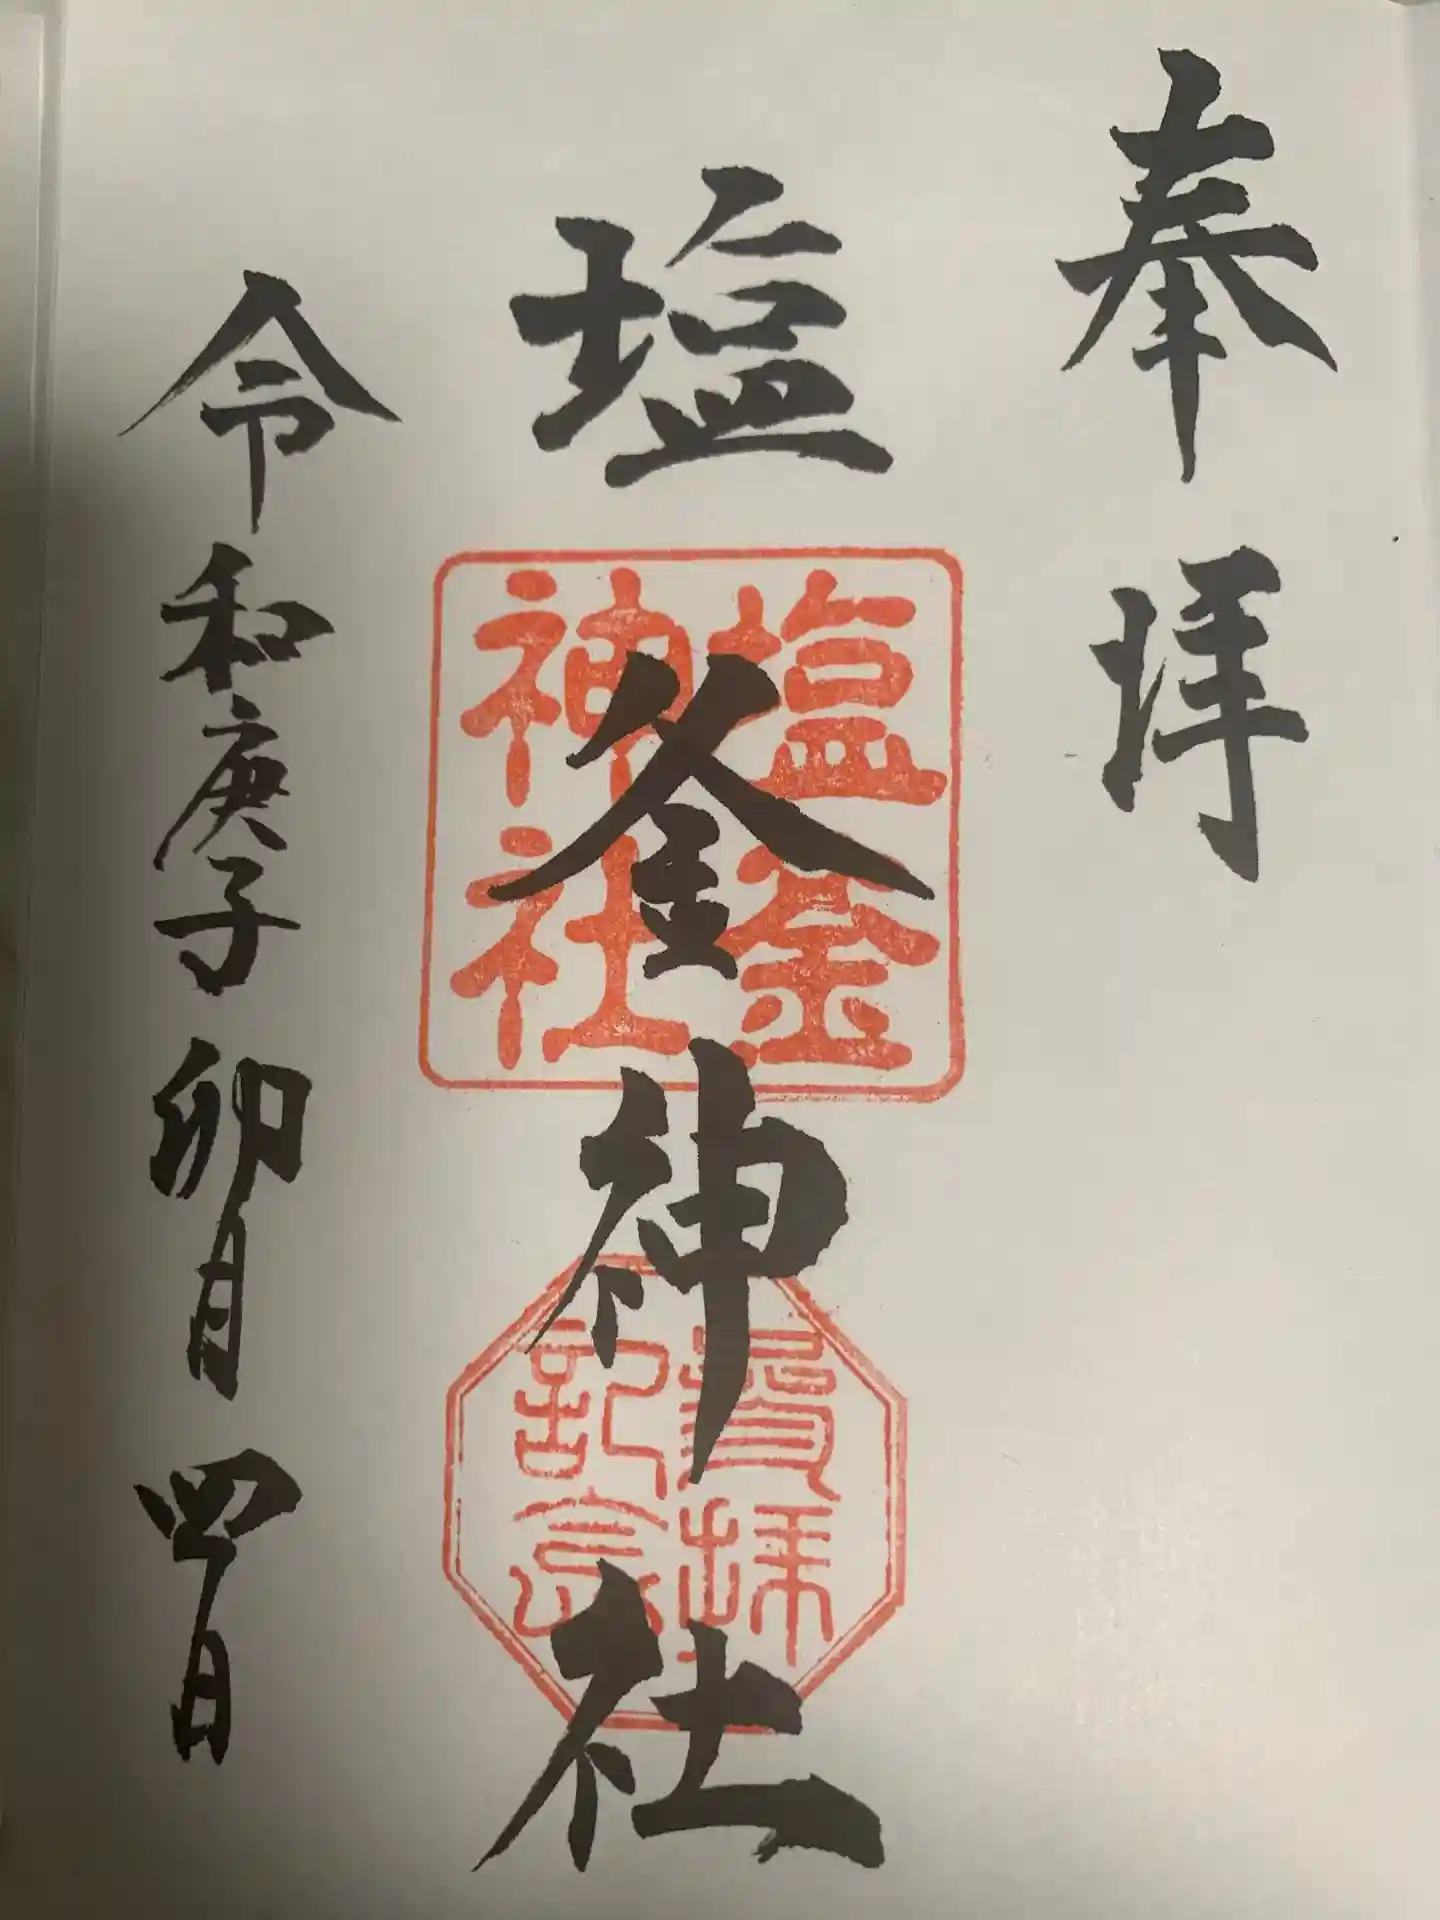 奉拝
塩釜神社
塩釜神社
参拝記念
令和庚子卯月四日